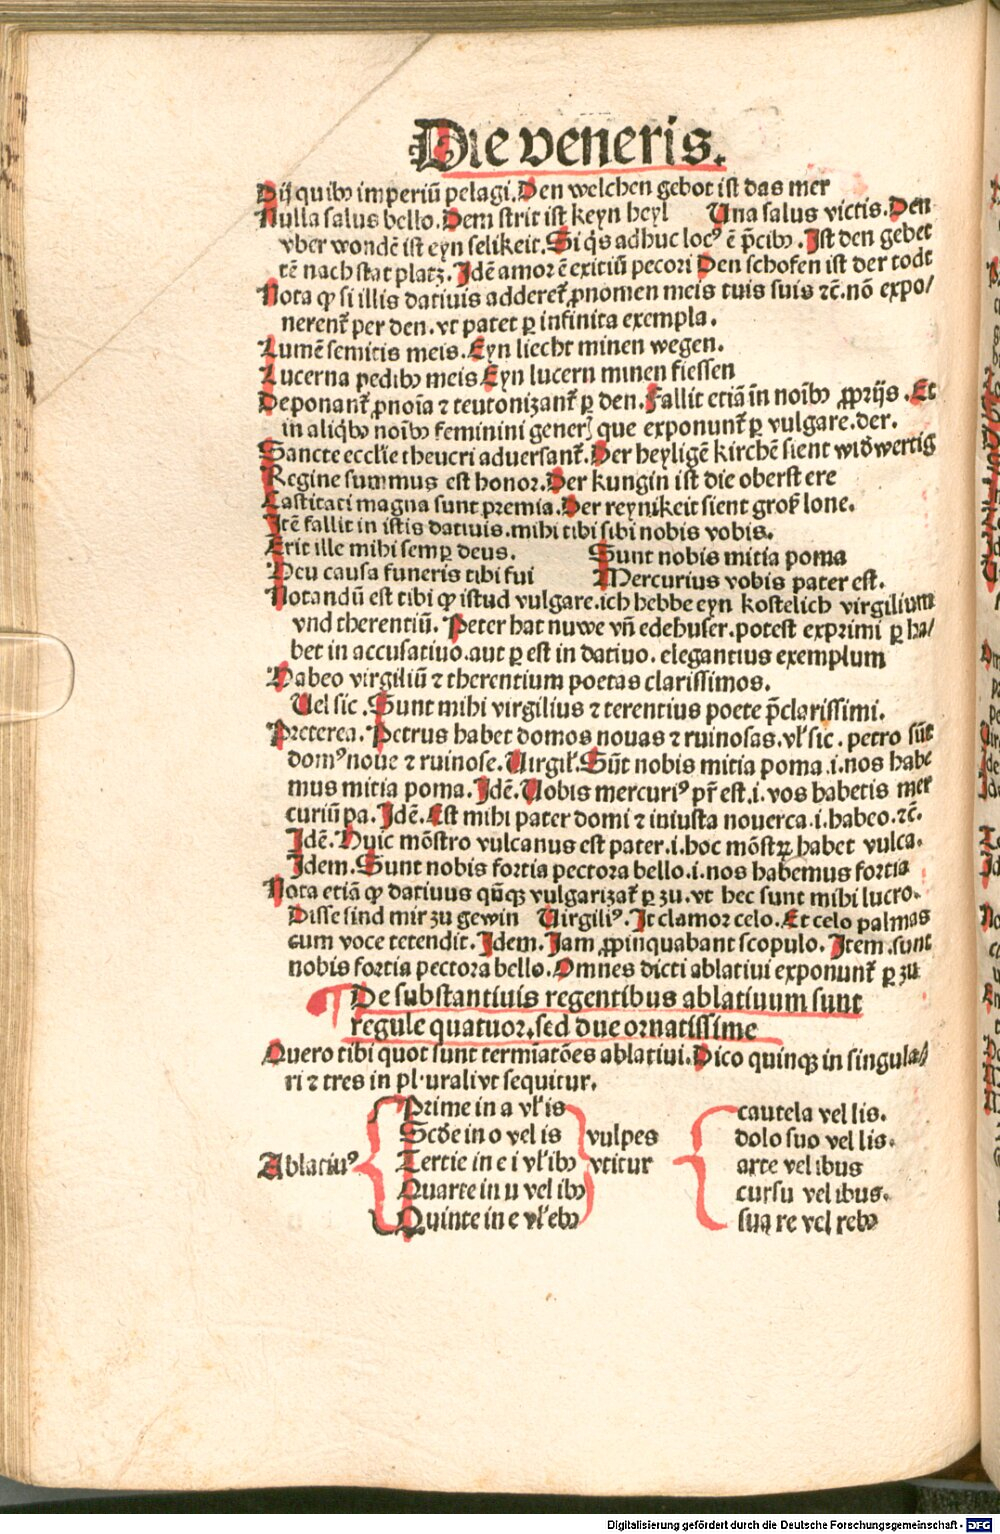 Die veneris.
Dij quibꝰ imperiū pelagi. Den welchen gebot ist das mer
Nulla salus bello. Dem strit ist keyn heyl Una salus victis. Den
vber wondē ist eyn selikeit. Si q̇s adhuc locꝰ ē p̄cibꝰ. Ist den gebet
tē nach stat platz. Idē amor ē exitiū pecori Den schofen ist der todt
Nota ꝙ si illis datiuis adderet᷑ ꝓnomen meis tuis suis ⁊c̄. nō expo/
nerent᷑ per den. vt patet ꝑ infinita exempla.
Lumē semitis meis. Eyn liecht minen wegen.
Lucerna pedibꝰ meis Eyn lucern minen fiessen
Deponant᷑ ꝓnoīa ⁊ teutonizant᷑ ꝑ den. Fallit etiā īn noībꝰ ꝓprijs. Et
in aliq̇bꝰ noībꝰ feminini gener᷑ que exponunt᷑ ꝑ vulgare. der.
Sancte eccl'ie theucri aduersant᷑. Der heyligē kirchē sient widwertig
Regine summus est honor. Der kungin ist die oberst ere
Castitati magna sunt premia. Der reynikeit sient groß lone.
Itē fallit in istis datiuis. mihi tibi sibi nobis vobis.
Erit ille mihi semꝑ deus. Sunt nobis mitia poma
Heu causa funeris tibi fui Mercurius vobis pater est.
Notandū est tibi ꝙ istud vulgare. ich hebbe eyn kostelich virgilium
vnd therentiū. Peter hat nuwe vn̄ ede huser. potest exprimi ꝑ ha/
bet in accusatiuo. aut ꝑ est in datiuo. elegantius exemplum
Habeo virgiliū ⁊ therentium poetas clarissimos.
Uel sic. Sunt mihi virgilius ⁊ terentius poete p̄clarissimi.
Preterea. Petrus habet domos nouas ⁊ ruinosas. vl' sic. petro sūt
domꝰ noue ⁊ ruinose. Uirgil'. Sūt nobis mitia poma. i. nos habe
mus mitia poma. Idē. Uobis mercuriꝰ pr̄ est. i. vos habetis mer
curiū pa. Idē. Est mihi pater domi ⁊ iniusta nouerca. i. habeo. ⁊c̄.
Idē. Huic mōstro vulcanus est pater. i. hoc mōstꝝ habet vulca.
Idem. Sunt nobis fortia pectora bello. i. nos habemus fortia
Nota etiā ꝙ datiuus qn̄qꝫ vulgarizat᷑ ꝑ zu. vt hec sunt mihi lucro.
Disse sind mir zu gewin Uirgiliꝰ. It clamor celo. Et celo palmas
cum voce tetendit. Idem. Iam ꝓpinquabant scopulo. Item. sunt
nobis fortia pectora bello. Omnes dicti ablatiui exponunt᷑ ꝑ zu
¶ De substantiuis regentibus ablatiuum sunt
regule quatuor. sed due ornatissime
Quero tibi quot sunt termīatōes ablatiui. Dico quinqꝫ in singula/
ri ⁊ tres in plurali vt sequitur.
Prime in a vl' is cautela vel lis.
Scd̄e in o vel is vulpes dolo suo vel lis.
Ablatiuꝰ Tertie in e i vl' ibꝰ vtitur arte vel ibus
Quarte in u vel ibꝰ cursu vel ibus.
Quinte in e vl' ebꝰ sua re vel rebꝰ
Digitalisierung gefördert durch die Deutsche Forschungsgemeinschaft - DFG